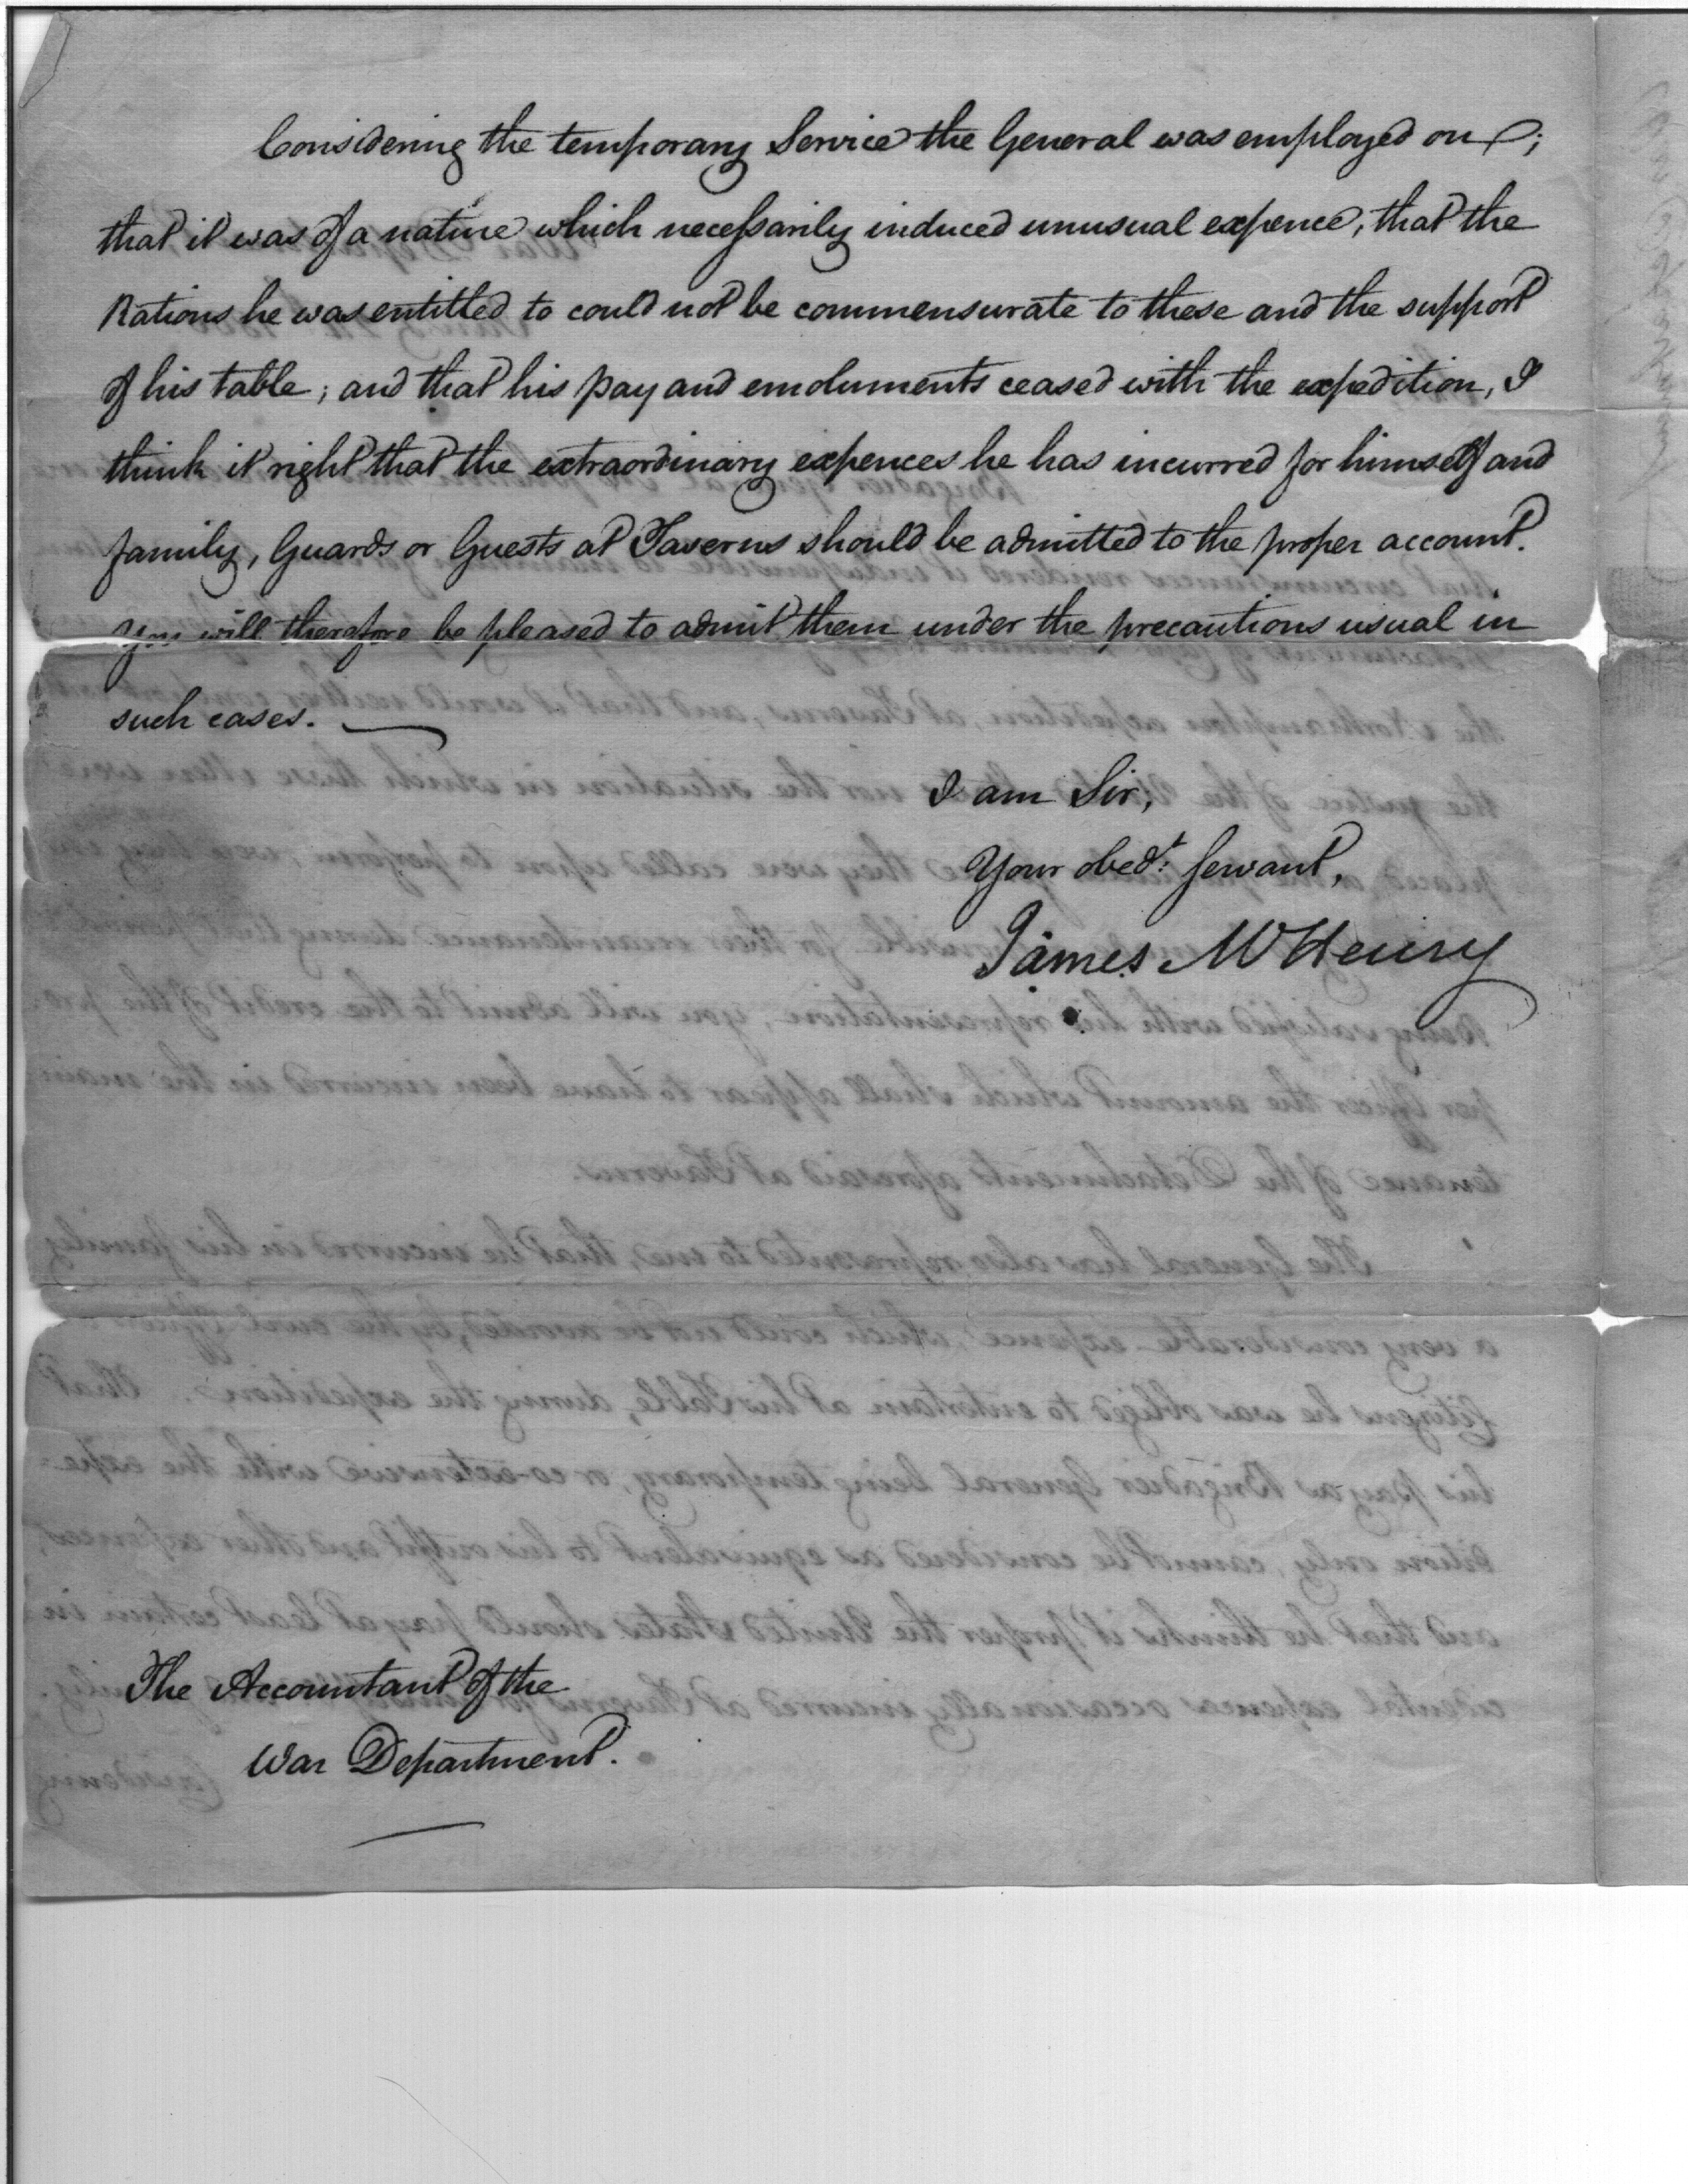 Considering the temporary Service the General was employed on;
that it was of a nature which necessarily induced unusual expence, that the
Rations he was entitled to could not be commensurate to these and the support
of his table; and that his pay and emoluments ceased with the expedition, I
think it right that the extraordinary expences he has incurred for himself and
family, Guards or Guests at Taverns should be admitted to the proper account.
You will therefore be pleased to admit them under the precautions usual in
such cases. —
I am Sir,
Your obedt: servant,
James McHenry
The Accountant of the
War Department.